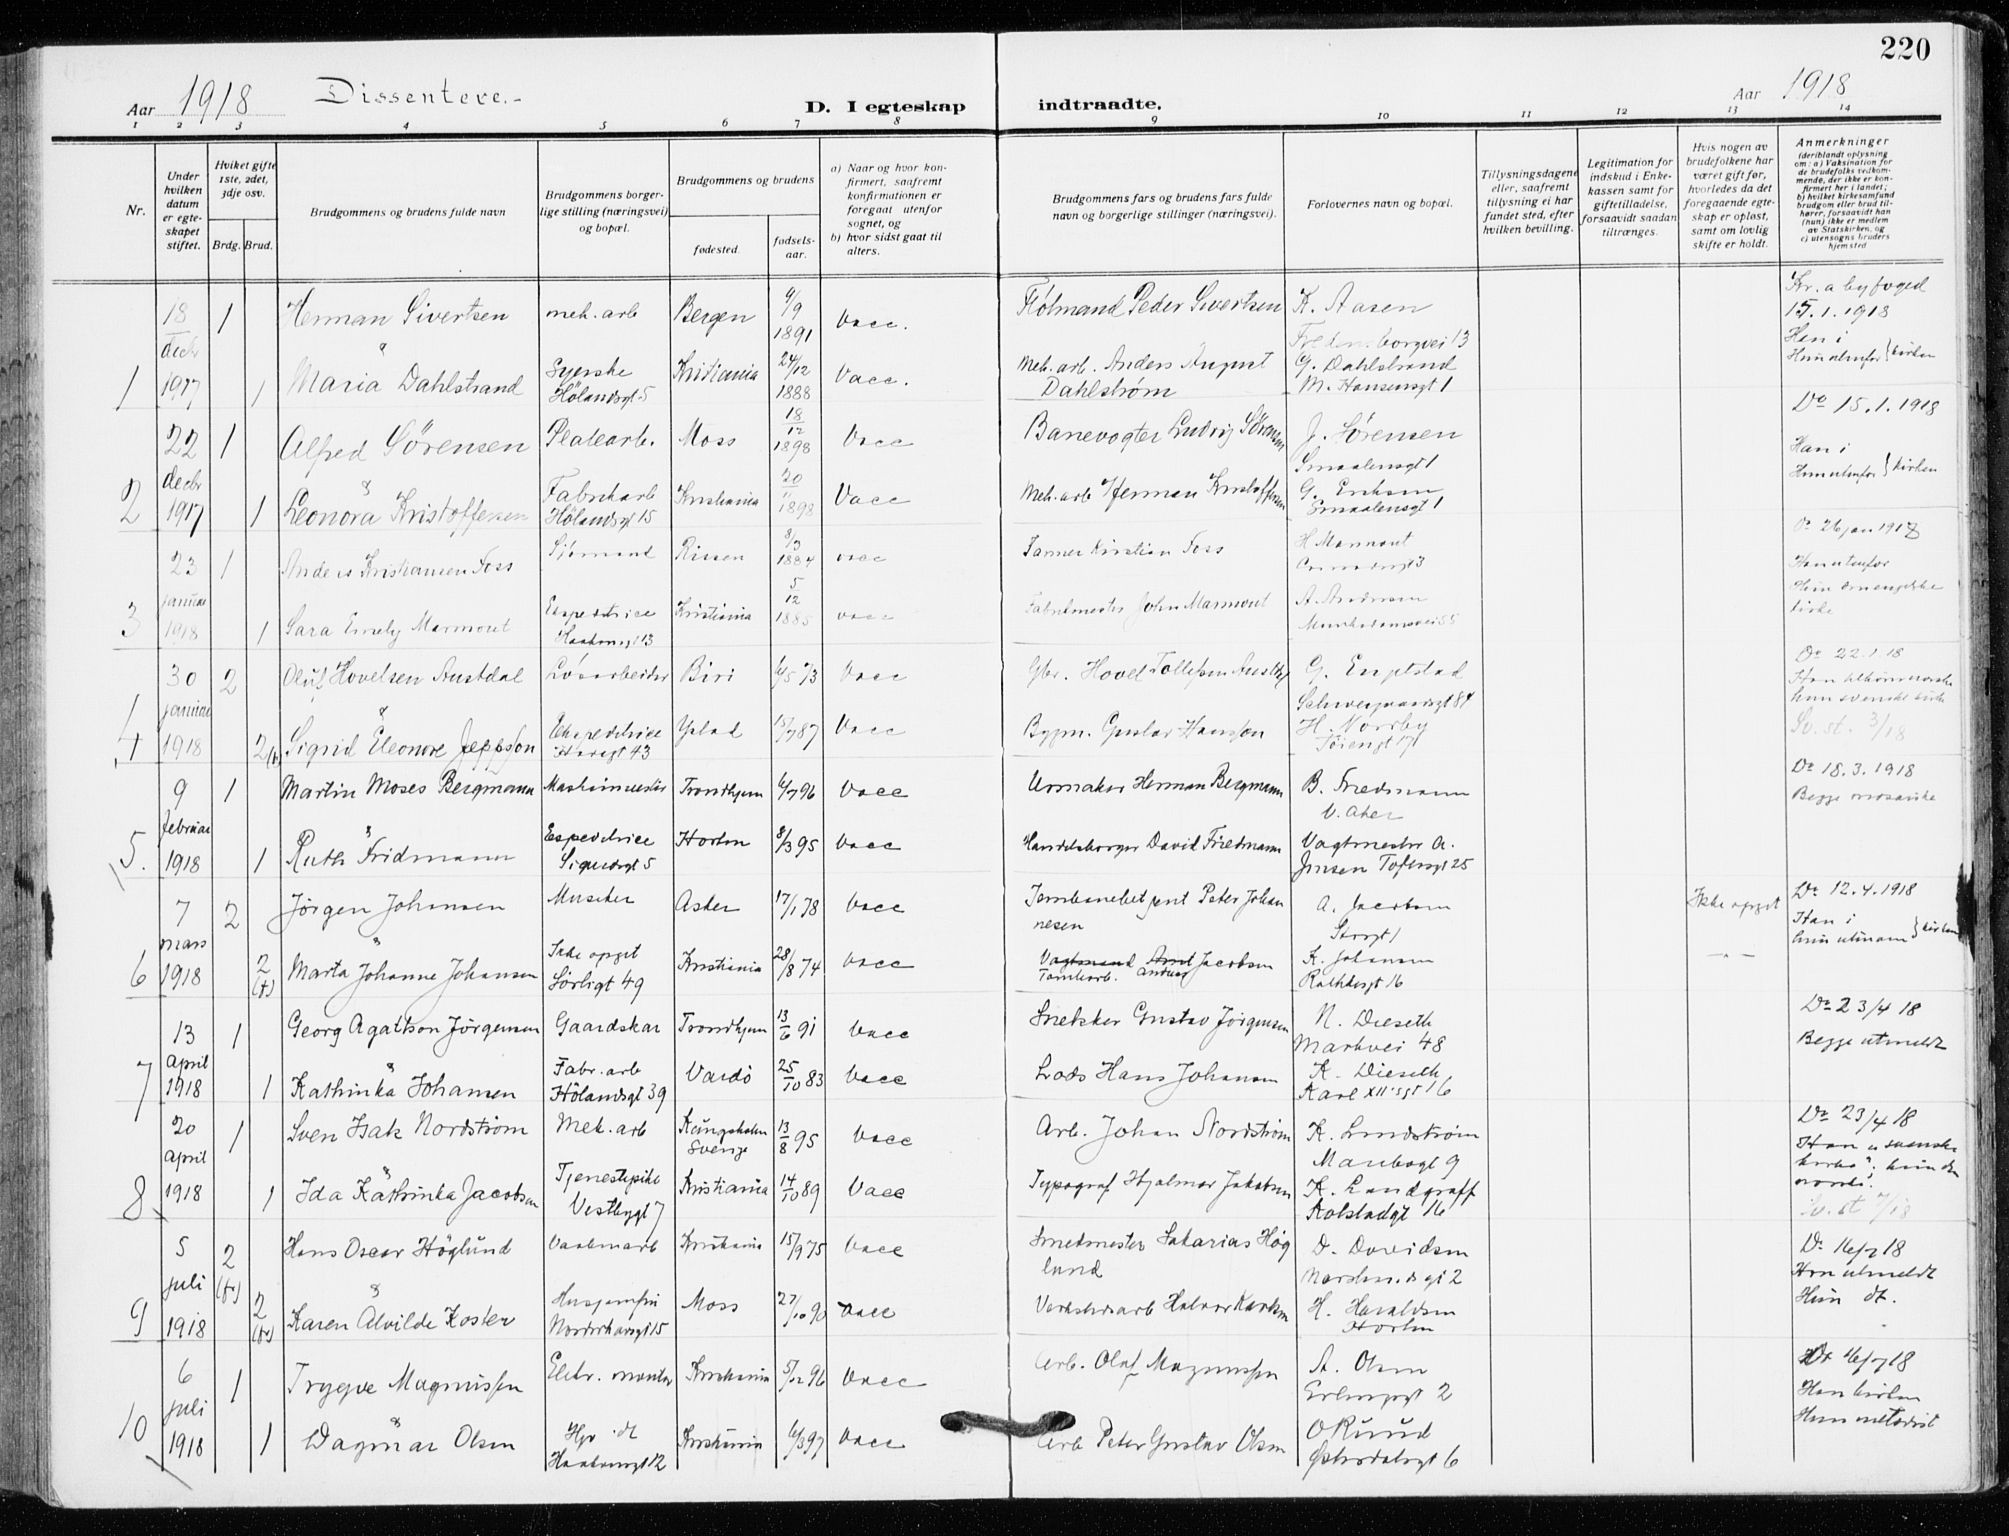 220
Aar 1918 Dissentere.-
D. I egteskap indtraadte.
Aar 1918
1 2 3 4 5 6 7 8 9 10 11 12 13 14
Nr.
Under hvilken datum er egteskapet stiftet.
Hvilket gifte 1ste, 2det, 3dje osv.
Brdg. Brud.
Brudgommens og brudens fulde navn
Brudgommens borgerlige stilling (næringsvei) og bopæl.
Brudgommens og brudens
fødested.
fødselsaar.
a) Naar og hvor konfirmert, saafremt konfirmationen er foregaat utenfor sognet, og
b) hvor sidst gaat til alters.
Brudgommens fars og brudens fars fulde navn og borgerlige stillinger (næringsvei).
Forlovernes navn og bopæl.
Tillysningsdagene eller, saafremt tillysning ei har fundet sted, efter hvilken bevilling.
Legitimation for indskud i Enkekassen samt for giftetilladelse, forsaavidt saadan tiltrænges.
Hvis nogen av brudefolkene har været gift før, hvorledes da det foregaaende egteskap er opløst, samt om lovlig skifte er holdt.
Anmerkninger
(deriblandt oplysning om: a) Vaksination for de brudefolks vedkommende, der ikke er konfirmert her i landet; b) hvilket kirkesamfund brudgom eller brud tilhører, forsaavidt han (hun) ikke er medlem av Statskirken, og c) utensogns bruders hjemsted
18 decbr 1917 1 Herman Sivertsen mek. arb Bergen 6/9 1891 vacc. Peder Sivertsen K. Aasen Fredensborgvei 13 Kr.a byfoged 15.1.1918
1 1 Maria Dahlstrand Syerske Hølandsgt 5 Kristiania 24/12 1888 Vacc. Mek. arb. Anders August Dahlstrøm G. Dahlstrand M. Hansensgt 1 Han i Hun utenfor } kirken
22 decbr 1917 1 Alfred Sörensen Platearb. Moss 18/12 1898 Vacc Banevogter Ludvig Sörensen J. Sørensen Smaalensgt 1 Do 15.1.1918
2 1 Leonora Kristoffersen Fabrikarb Hølandsgt 15 Kristiania 1898 Vacc Mek. arb Herman Kristoffersen G. Eriksen Smaalensgt 1 Han i Hun utenfor } kirken
23 januar 1918 1 Anders Kristiansen Foss Sjömand Rissen 8/3 1884 vacc Kristian Foss H Marmont 26 jan 1918 Han utenfor
3 1 Sara Emely Marmont Expeditrice 13 Kristiania 5/12 1885 vacc Fabrikmester John Marmont A. Andersen Munkedamsvei 55 Hun kirke
30 januar 1918 2 Oluf Hovelsen Austdal Løsarbeider Biri 6/5 73 Vacc Gbr. Hovel Tollefsen G. Engelstad Schweigaardsgt 84 Do 22.1.18
4 2 Sigrid Eleonore Jeppson Ekspeditrice 43 Ystad 15/7 87 Vacc Bygm. Gustav Hansson H. Norrby Töiengt 17 hun svenske kirke Sv. st. 3/18
9 februar 1918 1 Martin Moses Bergmann Maskinmester Trondhjem 6/7 96 Vacc Urmaker Herman Bergmann B. Friedmann V. Aker Do 18.3.1918 Begge mosaiske
5. 1 Ruth Fridmann Expeditrice Sigurdsgt 5 Horten 8/3 95 Vacc Handelsborger David Friedmann Vagtmester A. Jensen Toftesgt 25
7 mars 1918 2 Jörgen Johansen Musiker Asker 17/1 78 Vacc Jernbanebetjent Peter Johannesen A. Jacobsen Storgt 1 Ikke opget Do 12.4.1918
6 2 Marta Johanne Johansen Ikke opget Sörligt 49 Kristiania 28/8 74 Vacc Vagtmand Jacobsen Tomtearb. K. Johansen 16 -"- Han i hun utenom } kirken
13 april 1918 1 Georg Agathon Jörgensen Gaardskar Trondhjem 13/6 91 Vacc Snekker Gustav Jörgensen N. Dieseth Markvei 48 Do 23/4 18
7 1 Kathinka Johansen Fabr. arb Hölandsgt 39 Vardö 25/10 83 Vacc Lods Hans Johansen K. Dieseth Karl XII'sgt 16 Begge utmeldt
20 april 1918 1 Sven Isak Nordström Mek. arb Kungsholm Sverige 13/8 95 Vacc Arb. Johan Nordström K. Lindstrøm Maribogt 9 Do 23/4 18
8 1 Ida Kathinka Jacobsen Tjenestepike Vestbygt 7 Kristiania 14/10 89 Vacc Typograf Hjalmar Jakobsen K. Landgraff Kolstadgt 16 Han i svenske kirke; hun den norske. Sv. st 7/18
5 juli 1918 2 Hans Oscar Höglund Kristiania 15/9 75 Vacc Smedmester Sakarias Höglund D. Davidsen 2 Do 16/7 18 Han utmeldt
9 2 Karen Alvilde Koster Moss 27/10 90 Vacc Halvor Karlsen H. Haraldsen Horten Hun do.
6 juli 1918 1 Trygve Magnussen Elektr. montør Kristiania 5/12 96 Vacc Arb. Olaf Magnussen A. Olsen Erlingsgt 2 Do 16/7 18 Han kirken
10 1 Dagmar Olsen Haakonsgt 12 Kristiania 6/3 97 Vacc Arb Peter Gustav Olsen O Ruud 6 Hun metodist